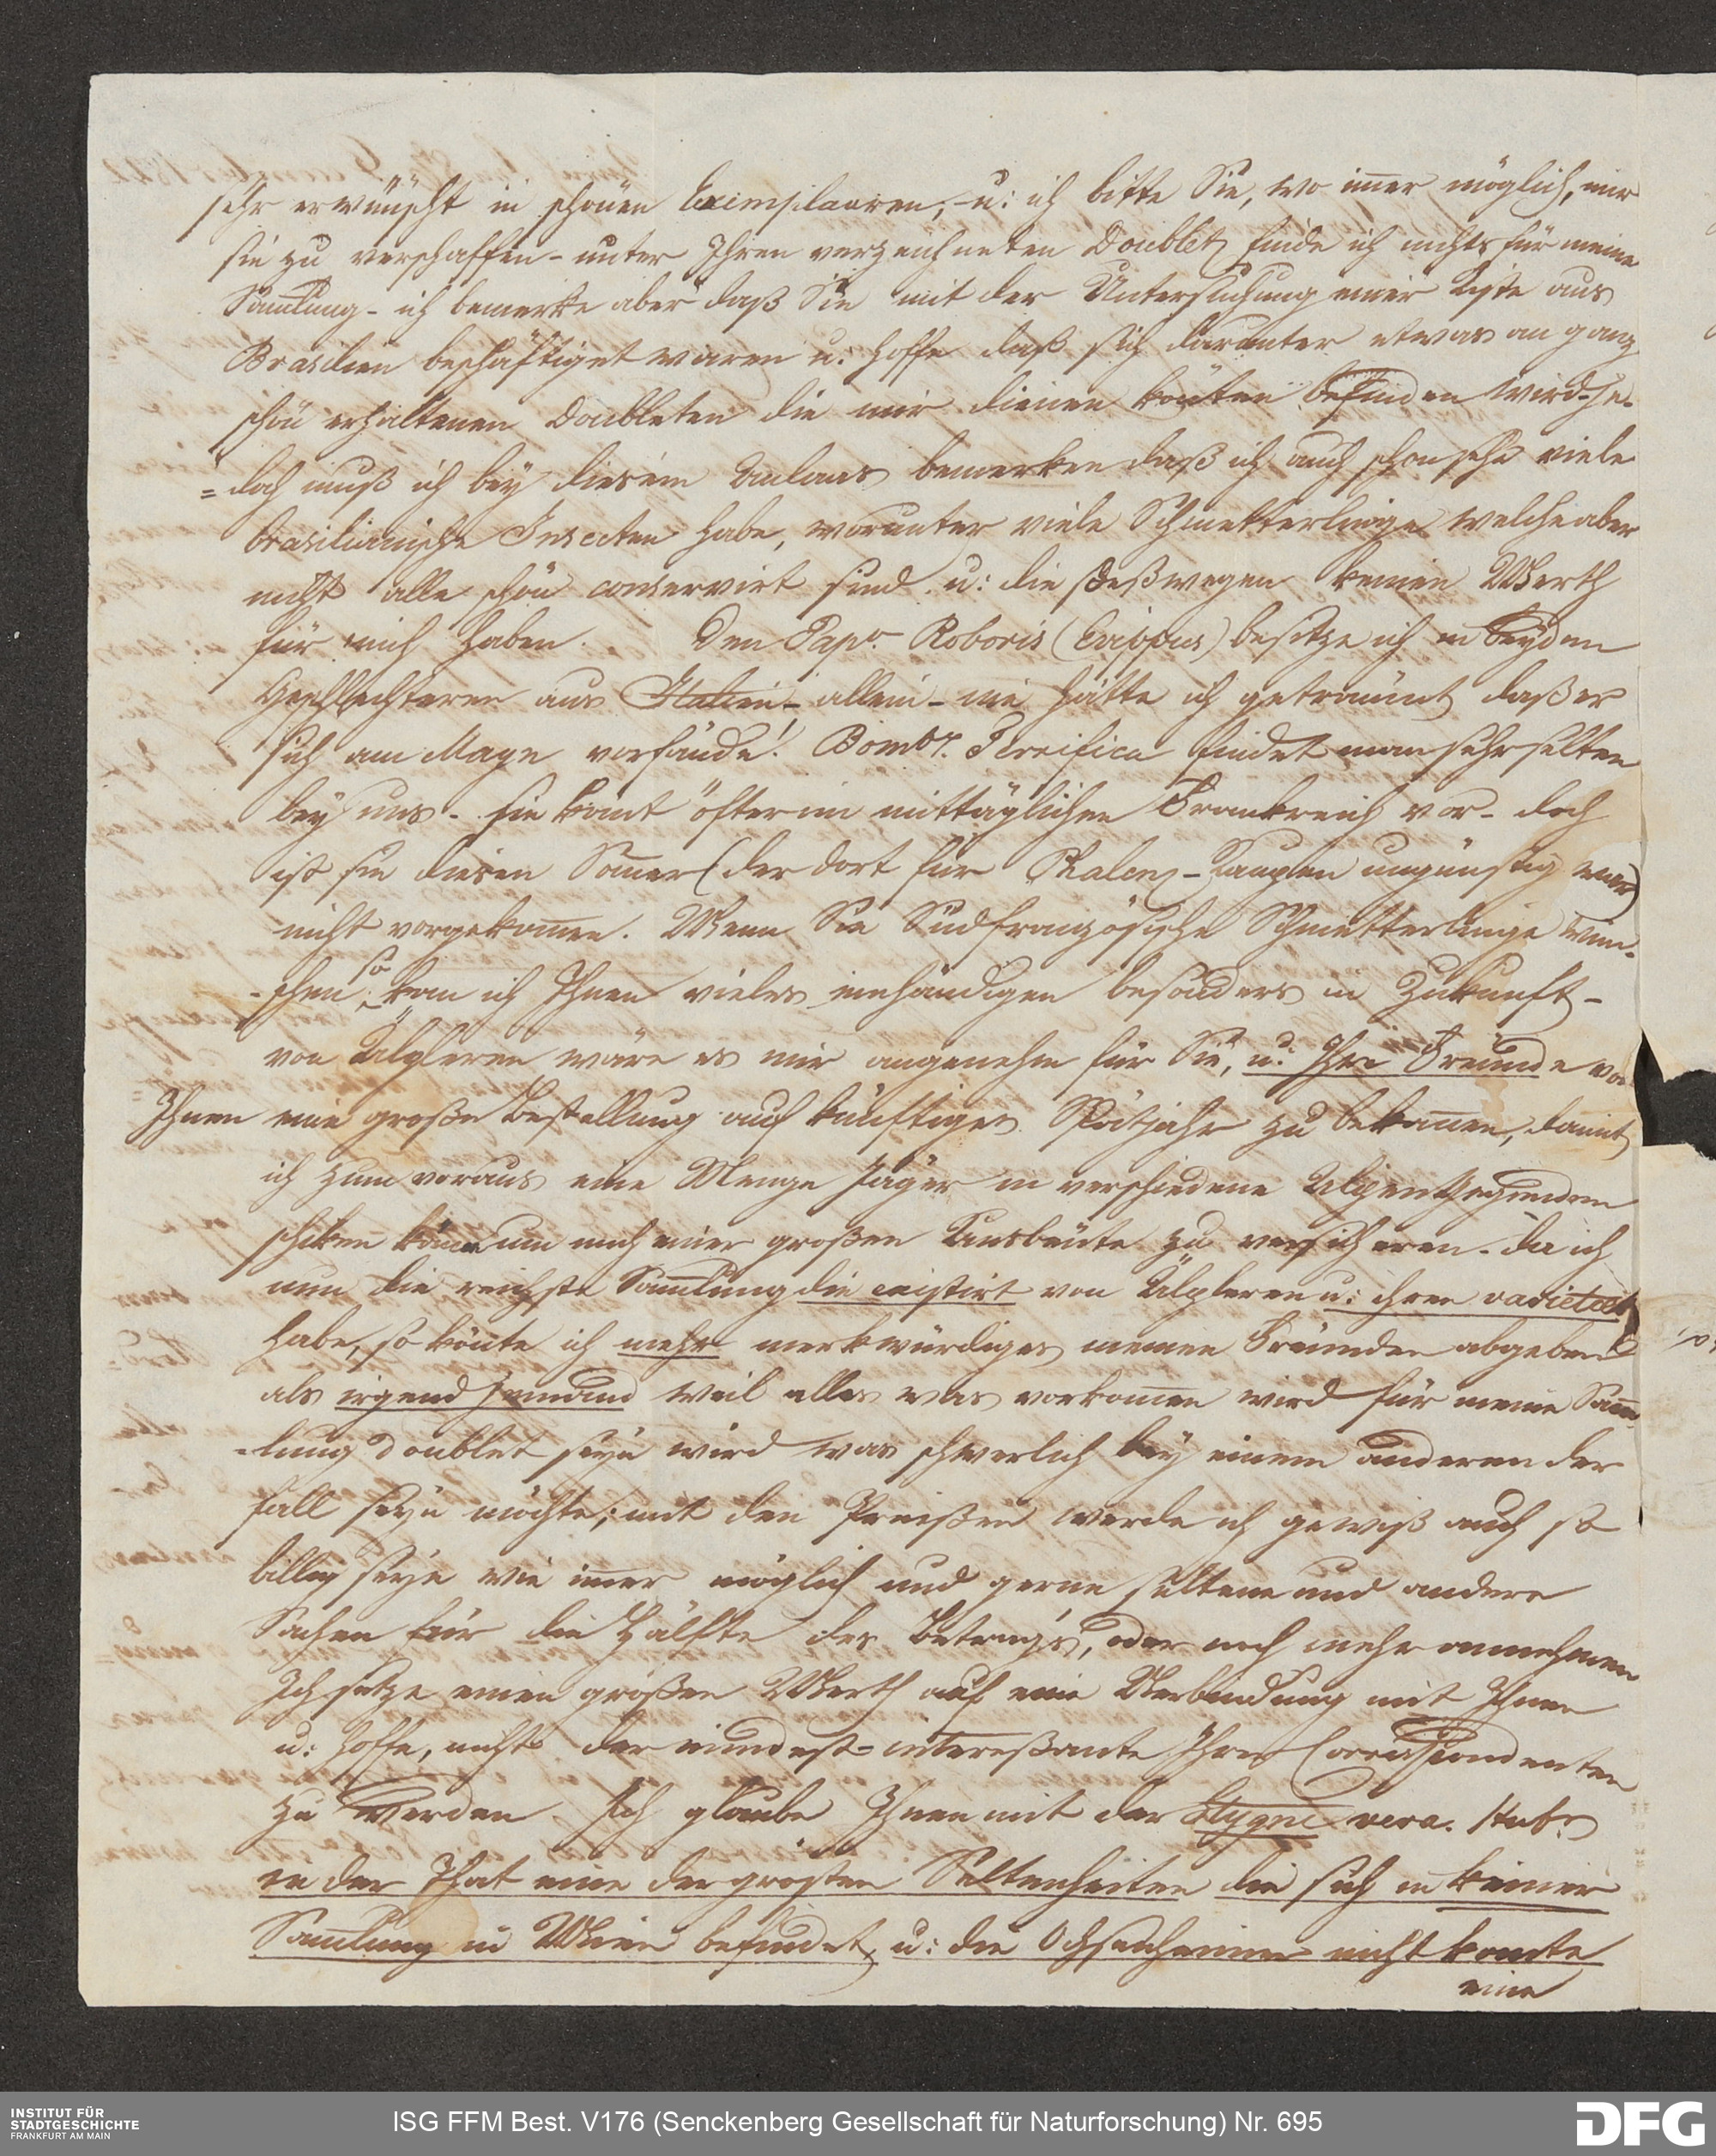 sehr erwünscht in schönen Exempilaaren, u: ich bitte Sie, wo im̅er möglich, mir
sie zu verschaffen – unter Ihren verzeichneten Doublet finde ich nichts für meine
Sam̅lung – ich bemerke aber daß Sie mit der Untersuchung einer Kiste aus
Brasilien beschäftiget waren u: hoffe daß sich darunter etwas an ganz
schön erhaltenen Doubleten die mir dienen kön̅ten befinden wird – je-
= doch muß ich bey diesem Anlaas bemerken daß ich auch schon sehr viele
brasilianische Insecten habe, worunter viele Schmetterlinge welche aber
nicht alle schön conservirt sind u: die deßwegen keinen Werth
für mich haben. Den Pap. Roboris (Evippus) besitze ich in beyden
Geschlechteren aus Italien – allein – nie hätte ich geträumt daß er
sich am Mayn vorfände! Bomb. Terrifica findet man sehr selten
bey uns – sie kom̅t öfter im mittäglichen Frankreich vor – doch
ist sie diesen Som̅er (der dort für Phalen – Raupen ungünstig war)
nicht vorgekom̅en. Wenn Sie Südfranzösische Schmetterlinge wün-
- schen, so kan̅ ich Ihnen vieles einhändigen besonders in Zukunft –
von Älpleren wäre es mir angenehm für Sie, u: Ihre Freünde von
Ihnen eine große Bestellung auf künftiges Spätjahr zu bekom̅en, damit
ich zum voraus eine Menge Jäger in verschiedene Alpen Gegenden
schiken kön̅e um mich einer großen Ausbeüte zu versicheren – da ich
nun die reichste Sam̅lung die existirt von Älpleren u: ihren varietaet
habe, so kön̅te ich mehr merkwürdiges meinen Freünden abgeben
als irgend jemand weil alles was vorkom̅en wird für meine Sam̅-
- lung doublet seyn wird was schwerlich bey einem anderen der
fall seyn möchte; mit den Preißen werde ich gewiß auch so
billig seyn wie im̅er möglich und gerne seltene und andere
Sachen für die Hälfte des Betrags, oder noch mehr annehmen
Ich setze einen großen Werth auf eine Verbindung mit Ihnen
u: hoffe, nicht der mindest – intereßante Ihrer Correspondenten
zu werden. Ich glaube Ihnen mit der Stygne vera. Hub:
in der That eine der grösten Seltenheiten die sich in keiner
Sam̅lung in Wien befindet, u: die Ochsenheimer nicht kan̅te
eine
INSTITUT FÜR
STADTGESCHICHTE
FRANKFURT AM MAIN
ISG FFM Best. V176 (Senckenberg Gesellschaft für Naturforschung) Nr. 695
DFG